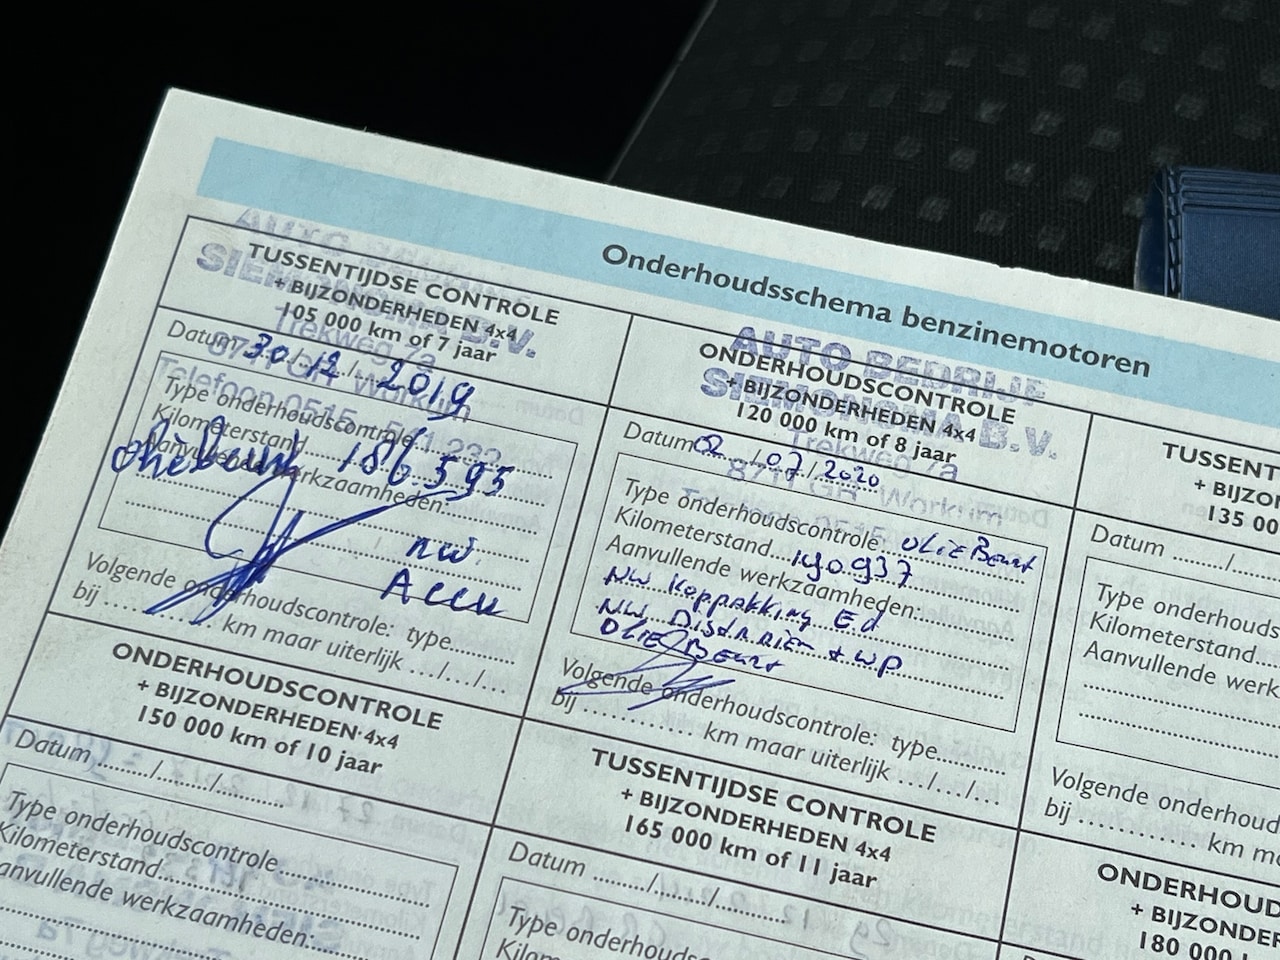 Onderhoudsschema benzinemotoren
AUTO BEDRIJF
SIEMONSMA B.V.
Trekweg 7a
8711 GH Workum
Telefoon 0515 - 541 232
TUSSENTIJDSE CONTROLE
+ BIJZONDERHEDEN 4x4
105 000 km of 7 jaar
Datum 30/12/2019
Type onderhoudscontrole
Kilometerstand 186 595
Aanvullende werkzaamheden:
oliebeurt
nw.
Accu
Volgende onderhoudscontrole: type..........
bij .................. km maar uiterlijk .../.../...
AUTO BEDRIJF
SIEMONSMA B.V.
Trekweg 7a
8711 GH Workum
ONDERHOUDSCONTROLE
+ BIJZONDERHEDEN 4x4
120 000 km of 8 jaar
Datum 02/07/2020
Type onderhoudscontrole OlieBeurt
Kilometerstand 190.937
Aanvullende werkzaamheden:
NW Koppakking Ed
NW Dist. Riem + WP
OLIE Beurt
Volgende onderhoudscontrole: type..........
bij .................. km maar uiterlijk .../.../...
TUSSENT
+ BIJZO
135 00
Datum ....../......
Type onderhouds
Kilometerstand....
Aanvullende werk
Volgende onderhoud
bij .................. km ma
ONDERHOUDSCONTROLE
+ BIJZONDERHEDEN 4x4
150 000 km of 10 jaar
Datum ....../....../......
Type onderhoudscontrole
Kilometerstand
Aanvullende werkzaamheden:
TUSSENTIJDSE CONTROLE
+ BIJZONDERHEDEN 4x4
165 000 km of 11 jaar
Datum ....../....../......
Type onderhoudscontrole
ONDERHOUD
+ BIJZONDER
180 000